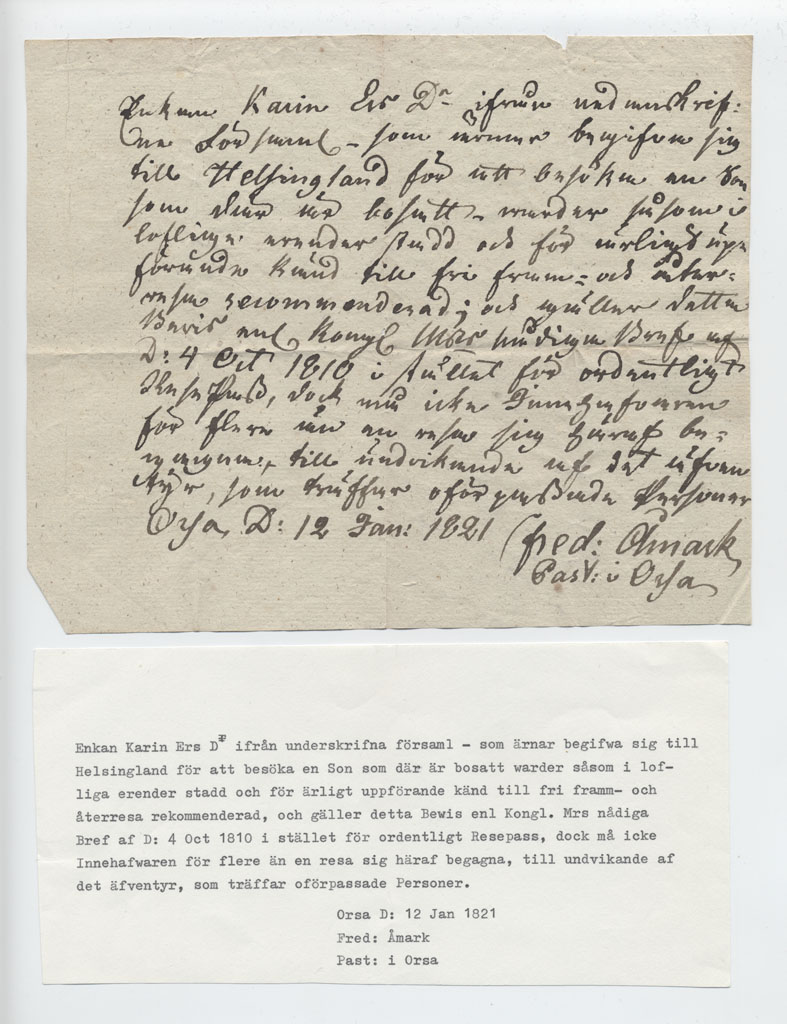 Enkan Karin Ers Dr ifrån underskrif-
na Församl – som ärnar begifva sig
till Helsingland för att besöka en Son
som där är bosatt – warder såsom i
lofliga erender stadd och för ärligt upp-
förande känd till fri fram- och åter-
resa recommenderad; och gäller detta
Bevis enl Kongl Mrs nådiga Bref af
D: 4 Oct 1810 i stället för ordentligt
Resepass, dock må icke Innehafvaren
för flere än en resa sig häraf be-
gagna, till undvikande af det äfven-
tyr, som träffar oförpassade Personer
Orsa D: 12 Jan: 1821
Fred: Åmark
Past: i Orsa
Enkan Karin Ers Dr ifrån underskrifna församl – som ärnar begifwa sig till
Helsingland för att besöka en Son som där är bosatt warder såsom i lof-
liga erender stadd och för ärligt uppförande känd till fri framm- och
återresa rekommenderad, och gäller detta Bewis enl Kongl. Mrs nådiga
Bref af D: 4 Oct 1810 i stället för ordentligt Resepass, dock må icke
Innehafwaren för flere än en resa sig häraf begagna, till undvikande af
det äfventyr, som träffar oförpassade Personer.
Orsa D: 12 Jan 1821
Fred: Åmark
Past: i Orsa